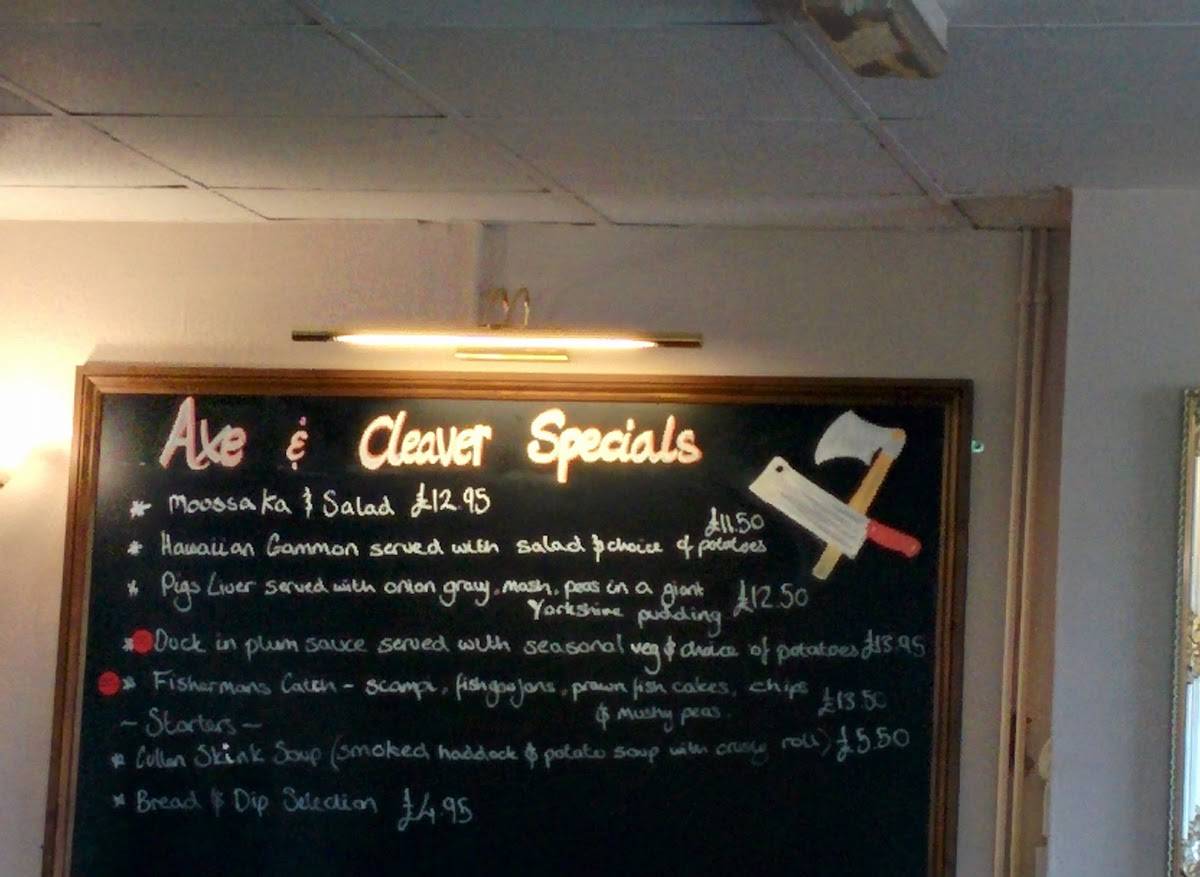 Axe & Cleaver Specials
* Moussaka & Salad £12.95
* Hawaiian Gammon served with salad & choice of potatoes £11.50
* Pigs Liver served with onion gravy, mash, peas in a giant
Yorkshire pudding £12.50
* Duck in plum sauce served with seasonal veg & choice of potatoes £13.95
* Fishermans Catch - scampi, fish goujons, prawn fish cakes, chips
& mushy peas. £13.50
- Starters -
* Cullen Skink Soup (smoked haddock & potato soup with crusty roll) £5.50
* Bread & Dip Selection £4.95